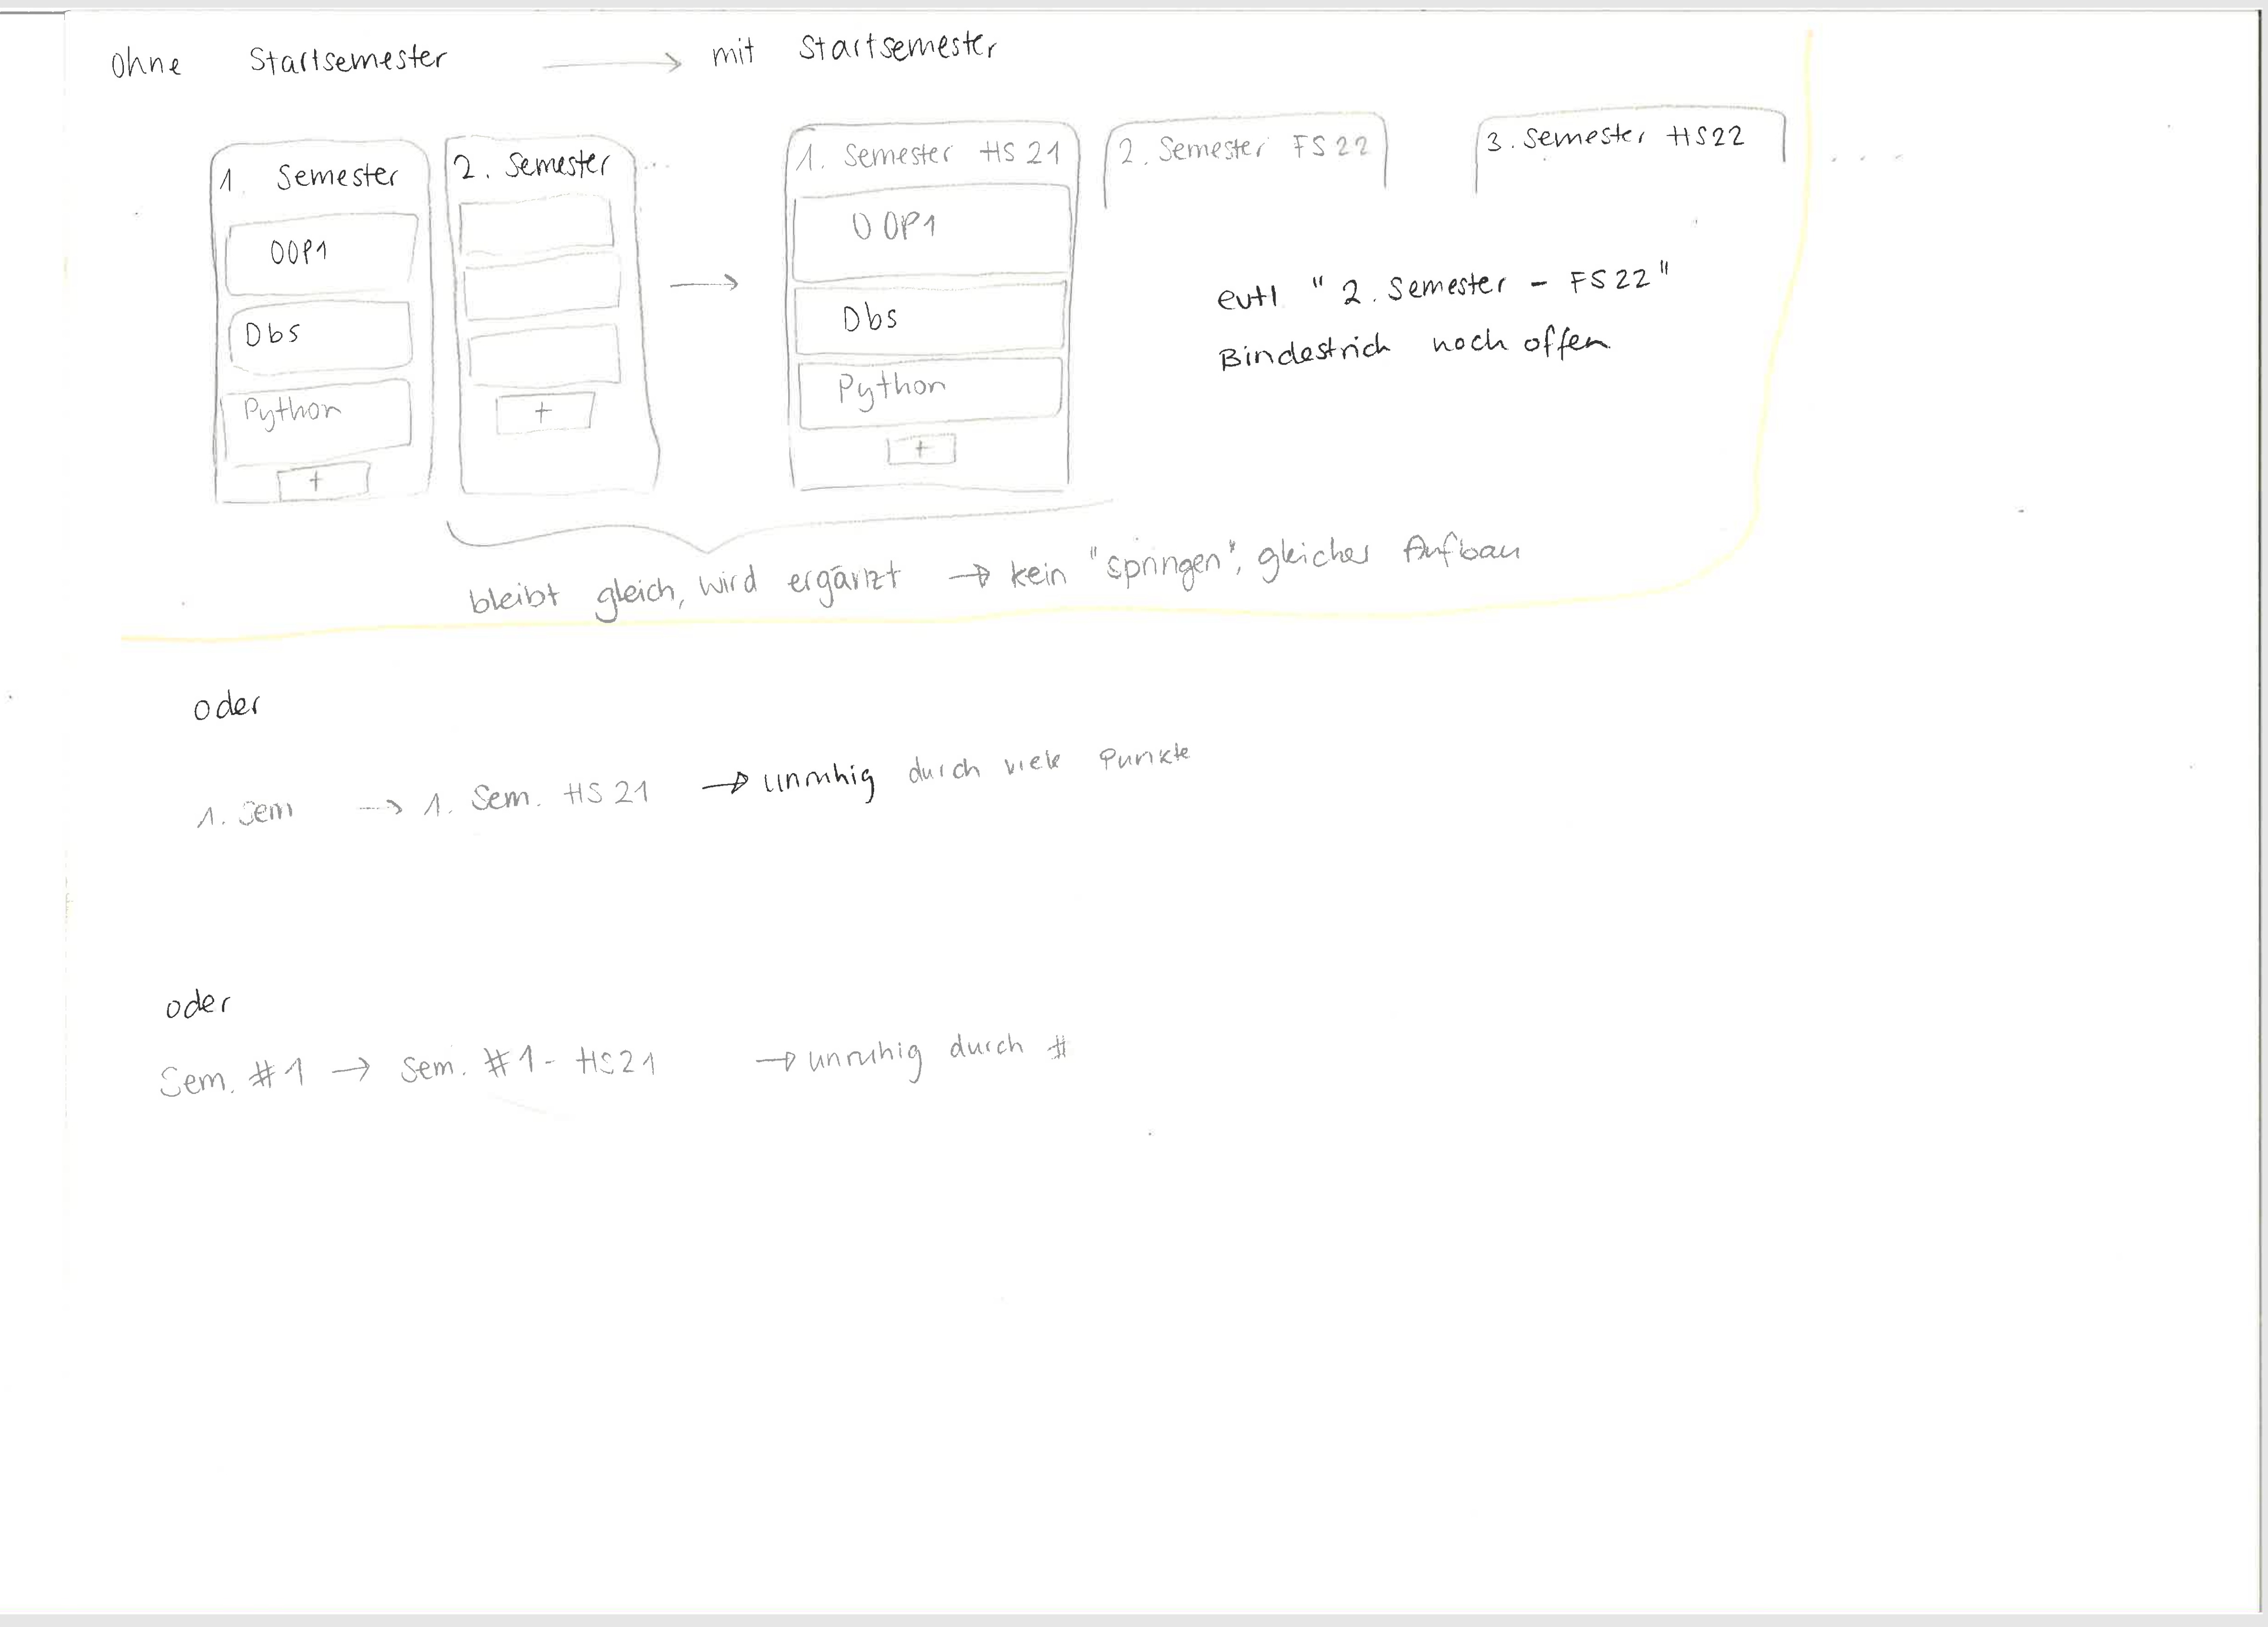 Ohne Startsemester → mit Startsemester
1. Semester
OOP1
Dbs
Python
+
2. Semester ...
+
→
1. Semester HS 21
OOP1
Dbs
Python
+
2. Semester FS 22
3. Semester HS22 ....
evtl "2. Semester - FS22"
Bindestrich noch offen
bleibt gleich, wird ergänzt → kein "springen", gleicher Aufbau
oder
1. Sem → 1. Sem. HS 21 → unruhig durch viele Punkte
oder
Sem. #1 → Sem. #1 - HS21 → unruhig durch #